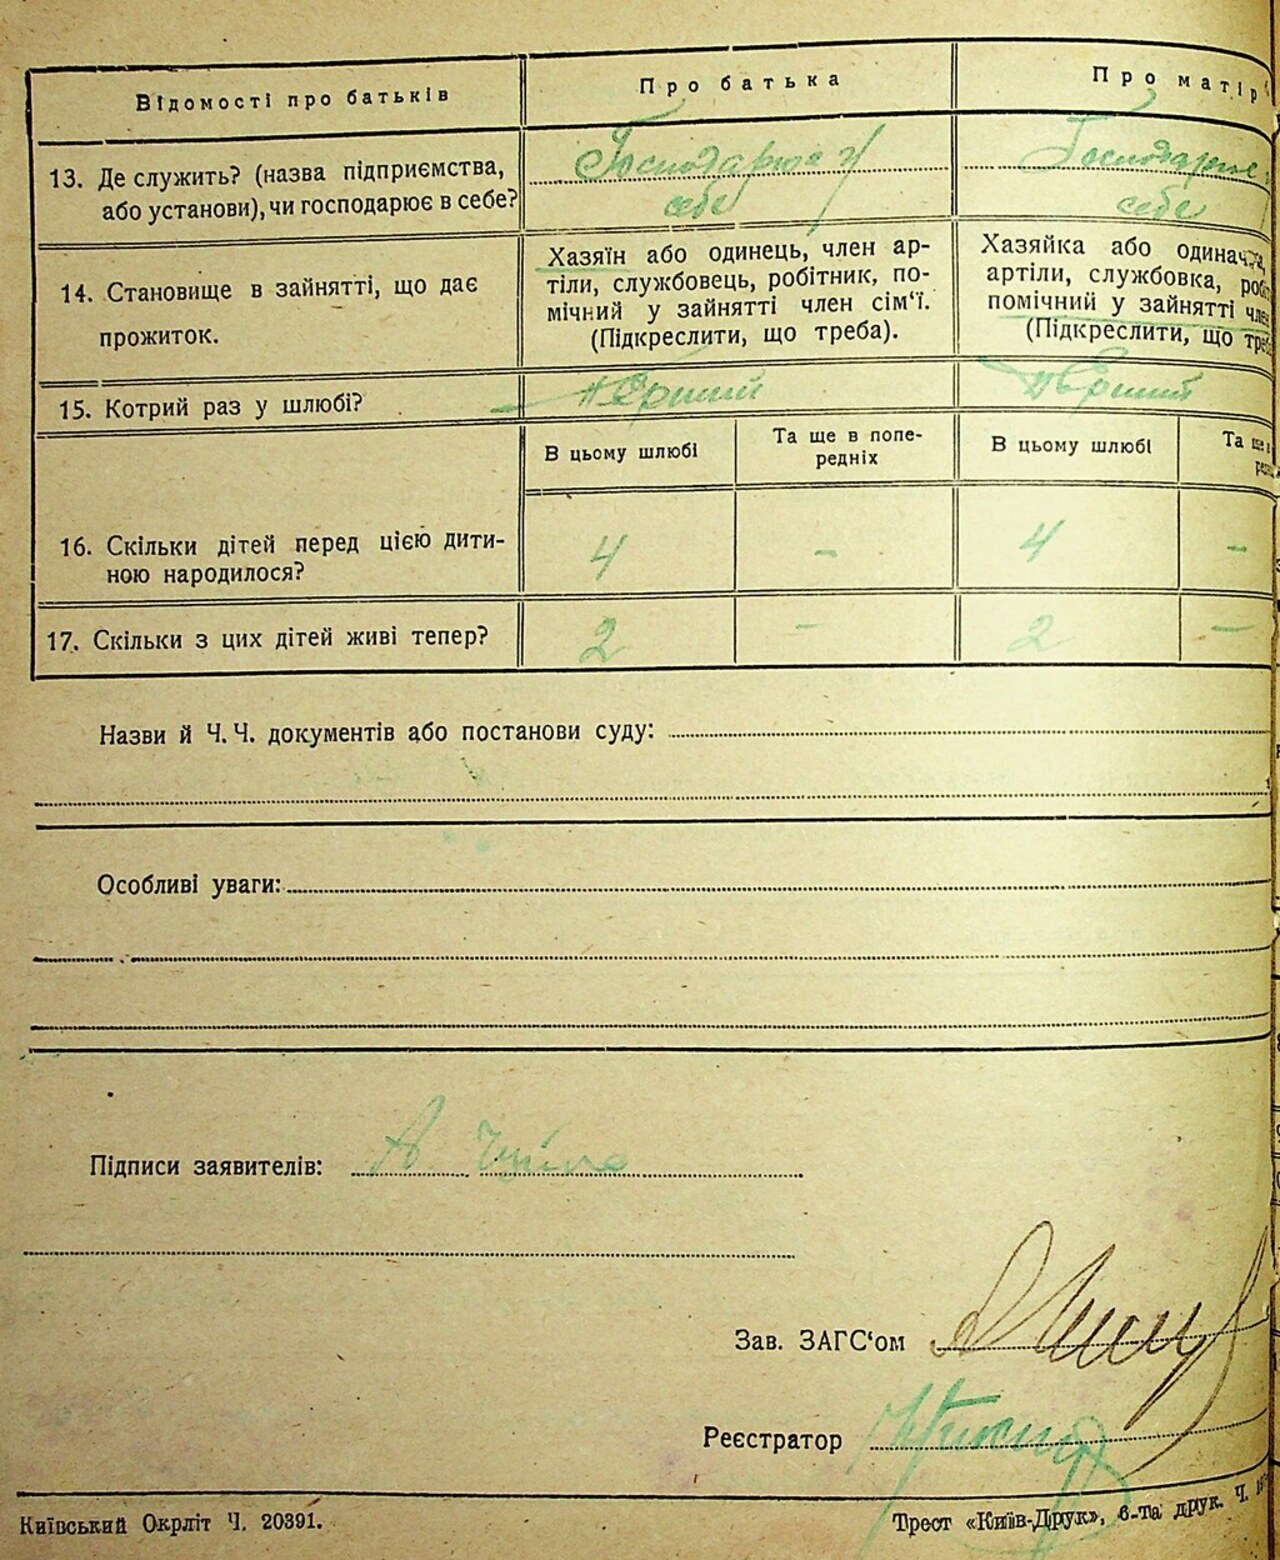 Відомості про батьків
Про батька
Про матір
13. Де служить? (назва підприємства,
або установи), чи господарює в себе?
Господарює у
себе
Господарює
себе
14. Становище в зайнятті, що дає
прожиток.
Хазяїн або одинець, член ар-
тіли, службовець, робітник, по-
мічний у зайнятті член сім‘ї.
(Підкреслити, що треба).
Хазяйка або одиначка,
артіли, службовка, робіт
помічний у зайнятті член
(Підкреслити, що треба
15. Котрий раз у шлюбі?
Перший
Перший
В цьому шлюбі
Та ще в попе-
редніх
В цьому шлюбі
Та ще в
16. Скільки дітей перед цією дити-
ною народилося?
4
-
4
-
17. Скільки з цих дітей живі тепер?
2
-
2
-
Назви й Ч. Ч. документів або постанови суду:
Особливі уваги:
Підписи заявителів:
Зав. ЗАГС‘ом
Реєстратор
Київський Окрліт Ч. 20391.
Трест «Київ-Друк», 6-та друк. Ч.